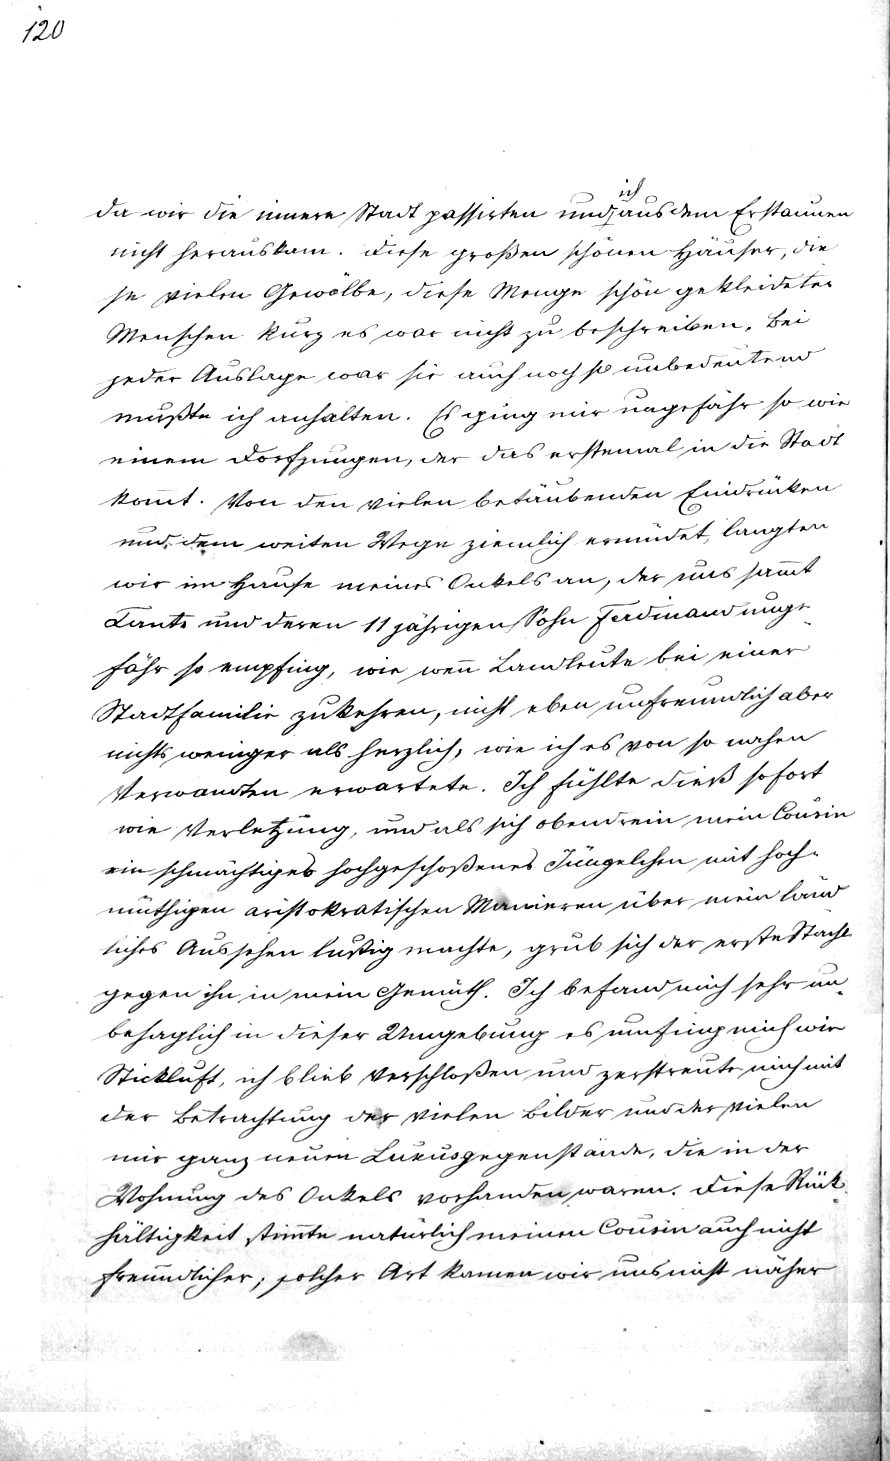 120
ich
da wir die innere Stadt passirten und aus dem Erstaunen
nicht herauskam. Diese großen schönen Häuser, die
se vielen Gewölbe, diese Menge schön gekleideter
Menschen kurz es war nicht zu beschreiben. Bei
jeder Auslage war sie auch noch so unbedeutend
mußte ich anhalten. Es ging mir ungefähr so wie
einem Dorfjungen, der das erstemal in die Stadt
kom̄t. Von den vielen betäubenden Eindrücken
und dem weiten Wege ziemlich ermüdet, langten
wir im Hause meines Onkels an, der uns sam̄t
Tante und deren 11 jährigen Sohn Ferdinand unge-
fähr so empfing, wie wen̄ Landleute bei einer
Stadtfamilie zukehren, nicht eben unfreundlich aber
nichts weniger als herzlich, wie ich es von so nahen
Verwandten erwartete. Ich fühlte dieß sofort
wie Verletzung, und als sich obendrein mein Cousin
ein schmächtiges hochgeschoßenes Jüngelchen mit hoch-
müthigen aristokratischen Manieren über mein länd
liches Aussehen lustig machte, grub sich der erste Stachl
gegen ihn in mein Gemüth. Ich befand mich sehr un-
behaglich in dieser Umgebung es umfing mich wie
Stickluft, ich blieb verschloßen und zerstreute mich mit
der Betrachtung der vielen Bilder und der vielen
mir ganz neuen Luxusgegenstände, die in der
Wohnung des Onkels vorhanden waren. Diese Rück-
hältigkeit stim̄te natürlich meinen Cousin auch nicht
freundlicher; solcher Art kamen wir uns nicht näher